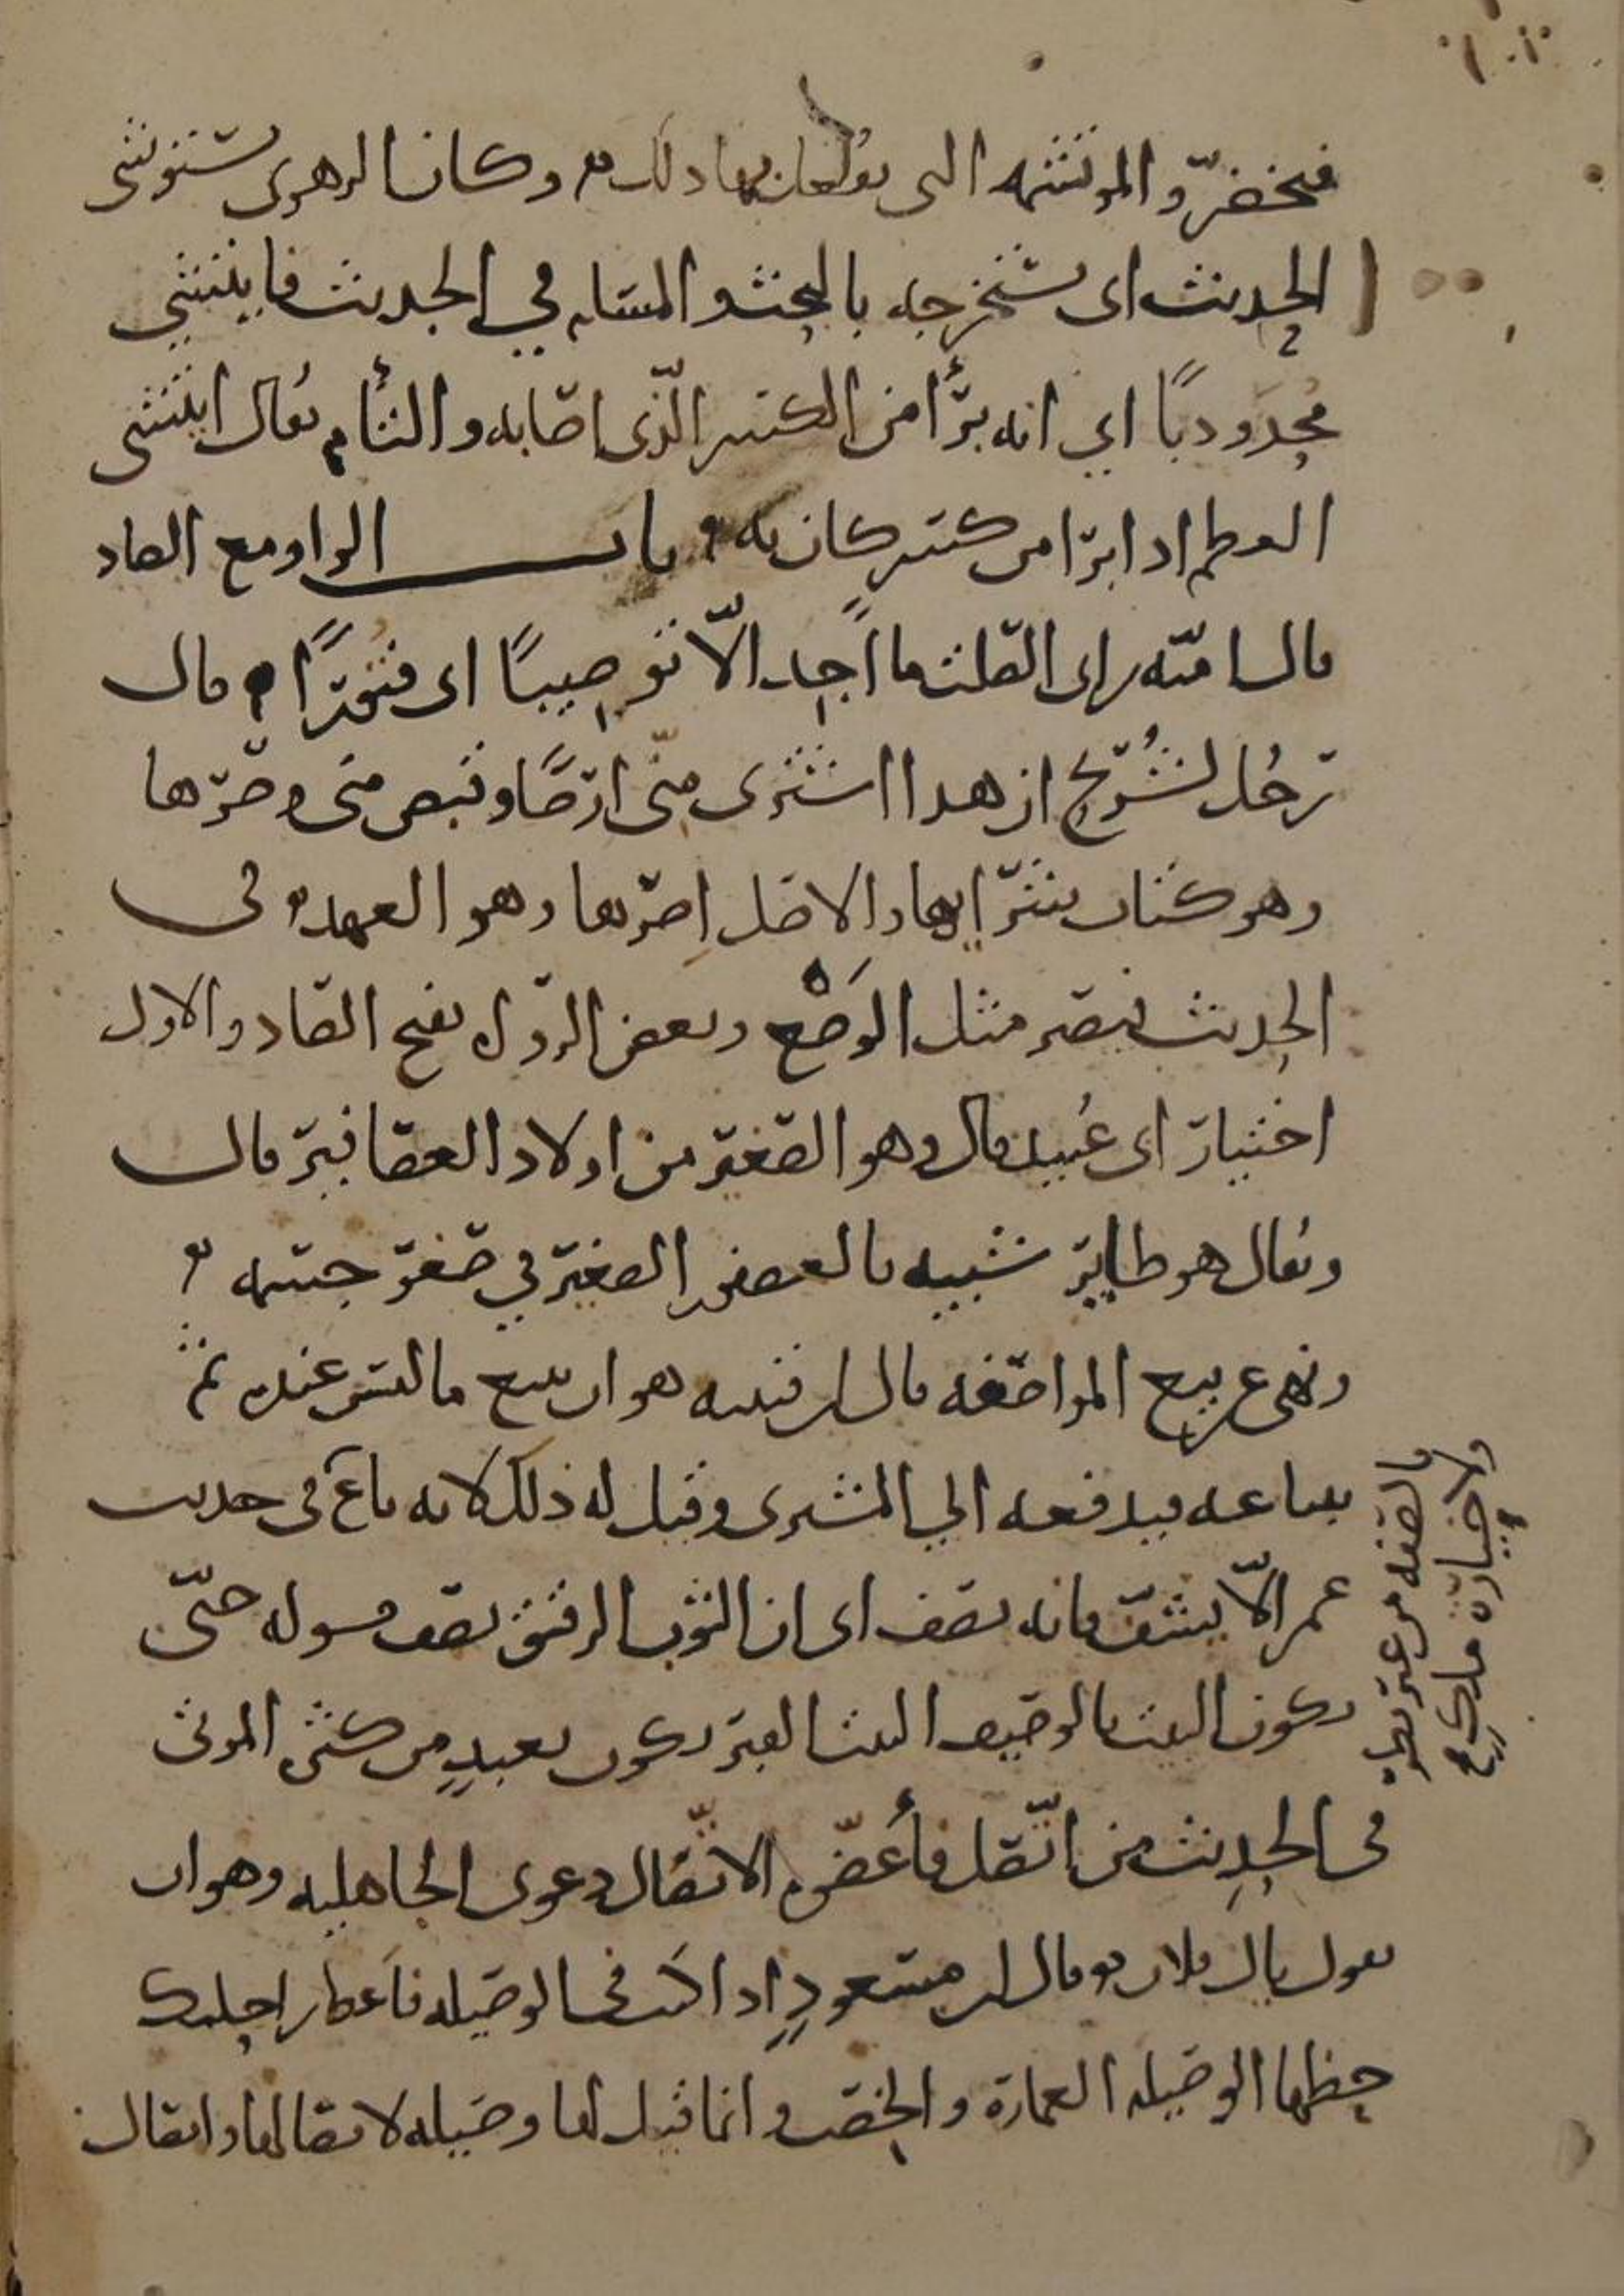 فيخضر والموتشمه التى يفعل بها ذلك وكان الزهرى يستوشى
الحديث اى يستخرجه بالبحث والمسايله في الحديث فايتشى
محدودبا اي انه برأ من الكسر الذى اصابه والتأم يقال ايتشى
العظم اذا برا من كسر كان به باب الواو مع الصاد
قال اميه بن ابى الصلت ما اجد الا توصيبا اى فتورا قال
رجل لشريح ان هذا اشترى منى ارضا وقبض منى وصرها
وهو كتاب شرايها والاصل اصرها وهو العهد في
الحديث فيصير مثل الوصع وبعض الرواه بفتح الصاد والاول
اختيار ابى عبيد قال وهو الصغير من اولاد العصافير قال
ويقال هو طاير شبيه بالعصفور الصغير في صغر جسمه
ونهى عن بيع المواصفه قال ابن قتيبه هو ان يبيع ما ليس عنده ثم
يبتاعه فيدفعه الي المشترى وقيل له ذلك لانه باع فى حديث
عمر الا يشف فانه يصف اى ان الثوب الرقيق يصف حتى
يكون البيت بالوصيف البيت القبر يكون بعبد من كثرة الموت
فى الحديث من اتصل فأعضوه الاتصال دعوى الجاهليه وهو ان
يقول يال فلان وقال ابن مسعود اذا كنت فى الوصيله فاعط راحلتك
حظها الوصيله العمارة والخصب وانما قيل لها وصيله لاتصالها واتصال
بالصفه من غير نظر
ولا حيازة ملك